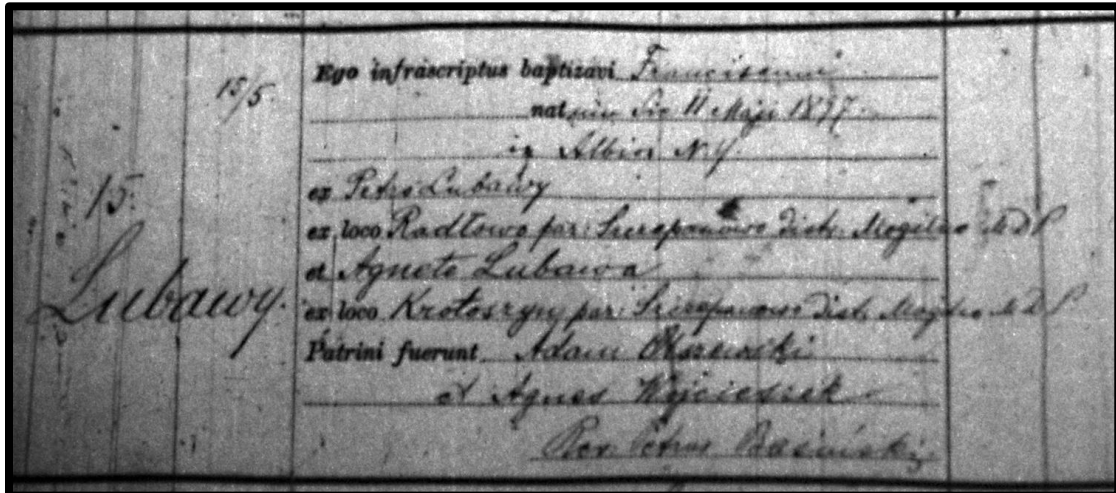 15/5.
Ego infrascriptus baptizavi
natum die 11 Maji 1897.
in Albion N.Y.
15.
ex Petro Lubawy
ex loco Radłowo par: Szczepanowo distr. Mogilno
et Agnete Lubawa
Lubawy.
ex loco Krotoszyn par: Szczepanowo distr. Mogilno
Patrini fuerunt Adam
et Agnes Wojcieszak
Rev. Petrus Basinski